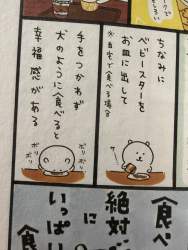 ちなみに
ベビースターを
お皿に出して
※自宅で食べる場合
手をつかわず
犬のように食べると
幸福感がある
ポリ
ポリ
ポリ
ポリ
食べ
絶対
に
いっぱい